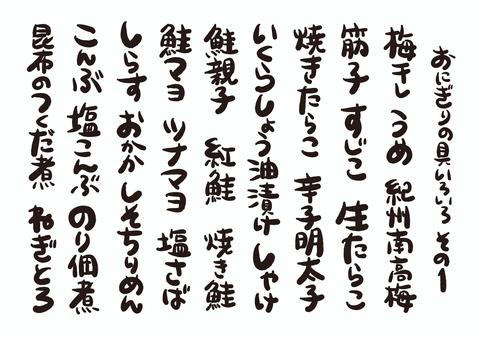 おにぎりの具いろいろ その1
梅干し うめ 紀州南高梅
筋子 すじこ 生たらこ
焼きたらこ 辛子明太子
いくらしょう油漬け しゃけ
鮭親子 紅鮭 焼き鮭
鮭マヨ ツナマヨ 塩さば
しらす おかか しそちりめん
こんぶ 塩こんぶ のり佃煮
昆布のつくだ煮 ねぎとろ